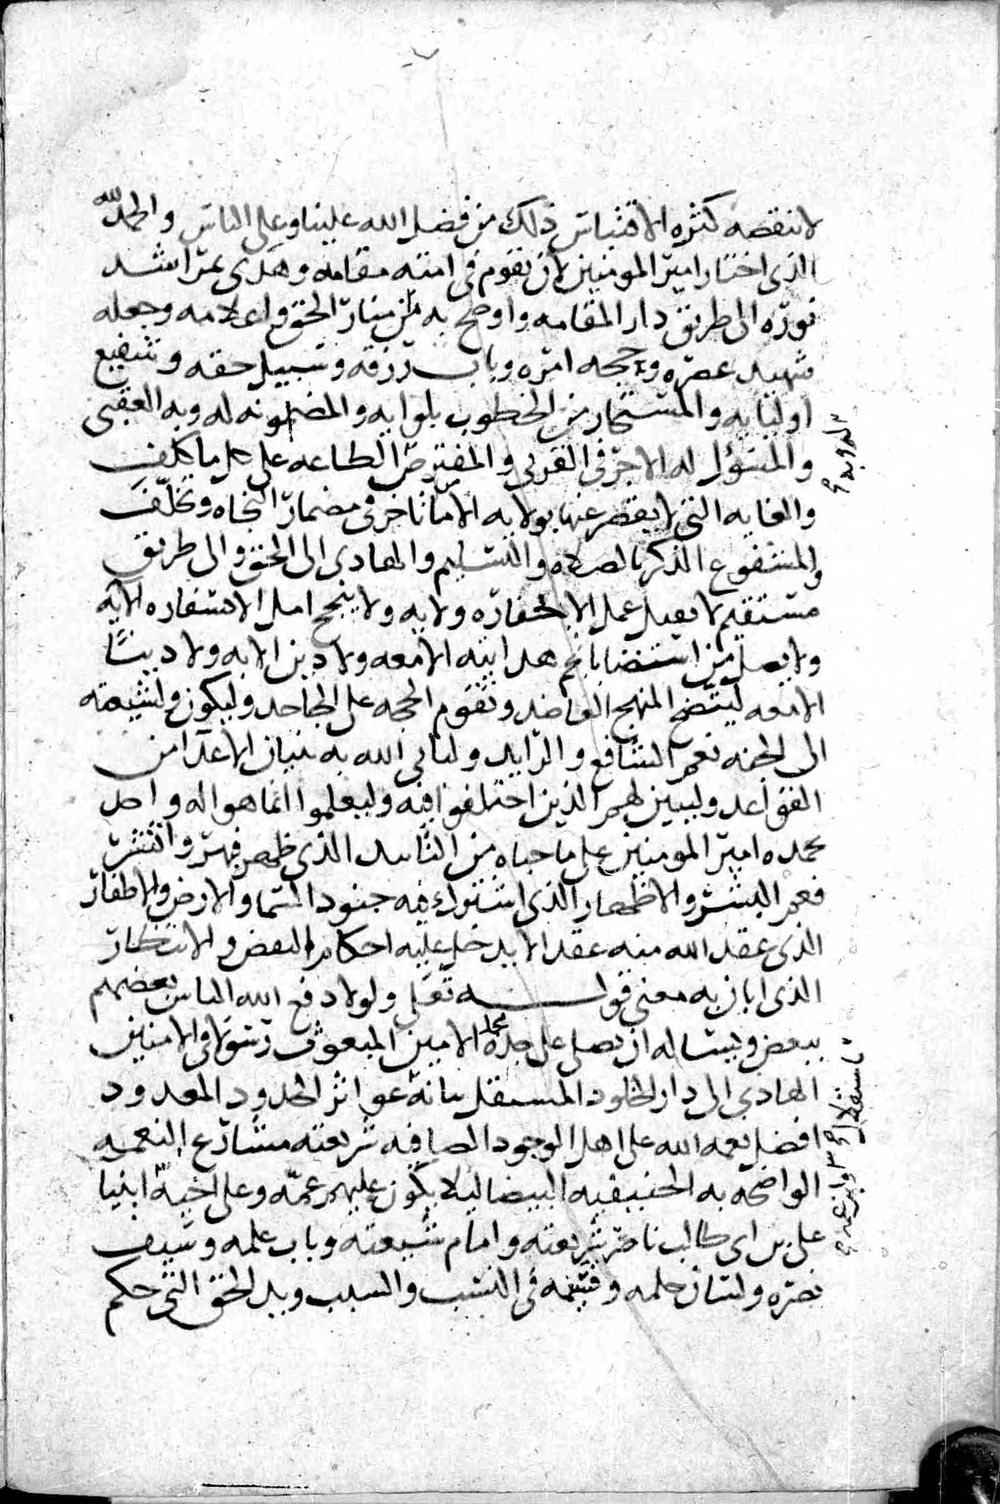 لا تنقصه كثره الاقتباس ذلك من فضل الله علينا وعلى الناس والحمد لله
الذى اختار امير المومنين لان يقوم فى امته مقامه وهدى بمراشد
نوره الى طريق دار المقامه واوضح به من منار الحق واعلامه وجعله
شهيد عصره وحجه امره وباب رزقه وسبيل حقه وشفيع
اوليايه والمستجار من الخطوب بلوايه والمضمونه له وبه العقبى
والمسؤل له الاجر فى القربى والمفترض الطاعه على كل ما كلف
والغايه التى لا يقصر عنها بولايه الا من تاخر فى مضمار النجاه وتخلف
والمشفوع الذكر بالصلاه والتسليم والهادى الى الحق والى طريق
مستقيم لا يقبل عمل الا بخفاره ولايه ولا ينجح امل الا
ولا يضل من استضا بانجم هدايته الامعه ولا دين الا به ولا دينًا
الامعه ليتضح المنهج القاصد وتقوم الحجه على الجاحد وليكون لشيعته
الى الجنه نعم الشافع والرايد ولياتى الله به بنيان الاعدا من
القواعد وليبين لهم الذين اختلفوا فيه وليعلموا انما هو اله واحد
يحمده امير المومنين على ما حباه من التاييد الذى ظهر فبهر وانتشر
فعم البشر والاظهار الذى اشترك فيه جنود السما والارض والاظفار
الذى عقد الله منه عقدا لا يدخل عليه احكام النقض والانتظار
الذى ابان به معنى قوله تعلى ولولا دفع الله الناس بعضهم
ببعض ويساله ان يصلى على جده محمد الامين المبعوث رسولا فى الاميين
الهادى الى دار الخلود المستقل بيانه عواثر الجدود المعدود
افضل نعمه الله على اهل الوجود الصافيه شريعته مشارع النعمه
الواضحه به الحنيفيه البيضا ليلا يكون عليهم غمه وعلى اخيه ابينا
على بن ابى طالب ناصر شريعته وامام شيعته وباب علمه وسيف
نصره ولسان حلمه وقسيمه فى النسب والسبب ويد الحق التى حكم